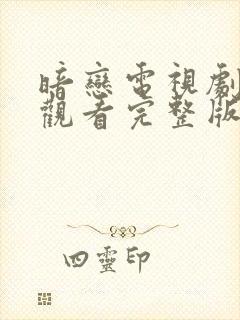 暗戀電視劇
觀看完整版
四靈印